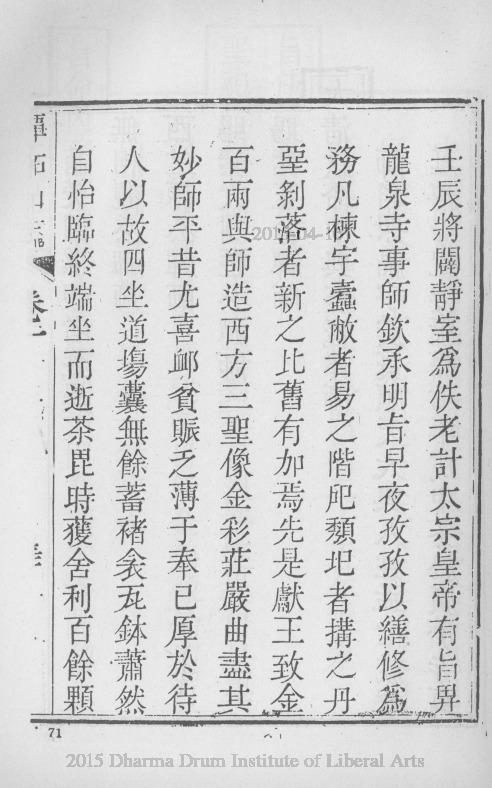 壬辰將闢靜室爲佚老計太宗皇帝有旨畀
龍泉寺事師欽承明旨早夜孜孜以繕修爲
務凡棟宇蠹敝者易之階戺頽圮者搆之丹
堊剝落者新之比舊有加焉先是獻王致金
百兩與師造西方三聖像金彩莊嚴曲盡其
妙師平昔尤喜卹貧賑乏薄于奉己厚於待
人以故四坐道塲囊無餘蓄褚衾瓦鉢蕭然
自怡臨終端坐而逝荼毘時獲舍利百餘顆
71
2015 Dharma Drum Institute of Liberal Arts